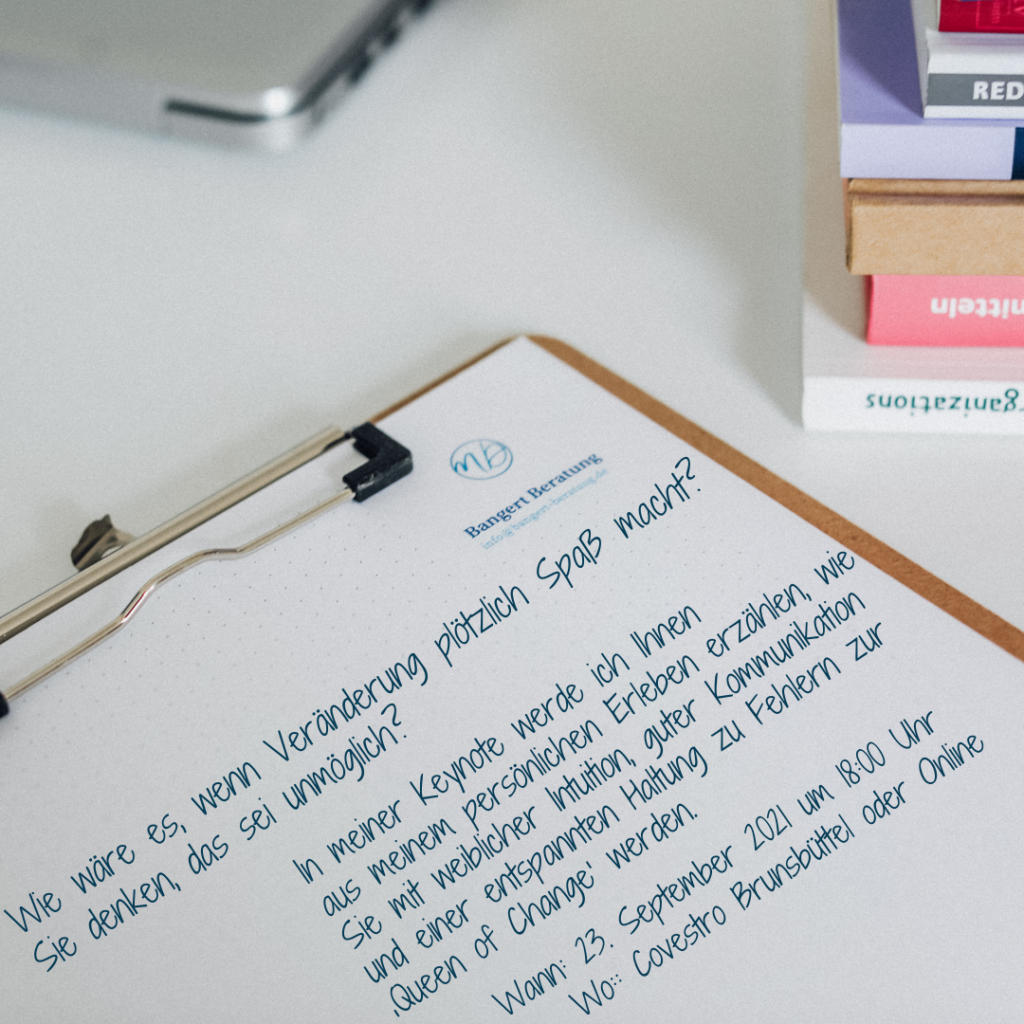 RED
nitteln
rganizations
mB
Bangert Beratung
info@bangert-beratung.de
Wie wäre es, wenn Veränderung plötzlich Spaß macht?
Sie denken, das sei unmöglich?
In meiner Keynote werde ich Ihnen
aus meinem persönlichen Erleben erzählen, wie
Sie mit weiblicher Intuition, guter Kommunikation
und einer entspannten Haltung zu Fehlern zur
‚Queen of Change' werden.
Wann: 23. September 2021 um 18:00 Uhr
Wo:: Covestro Brunsbüttel oder Online